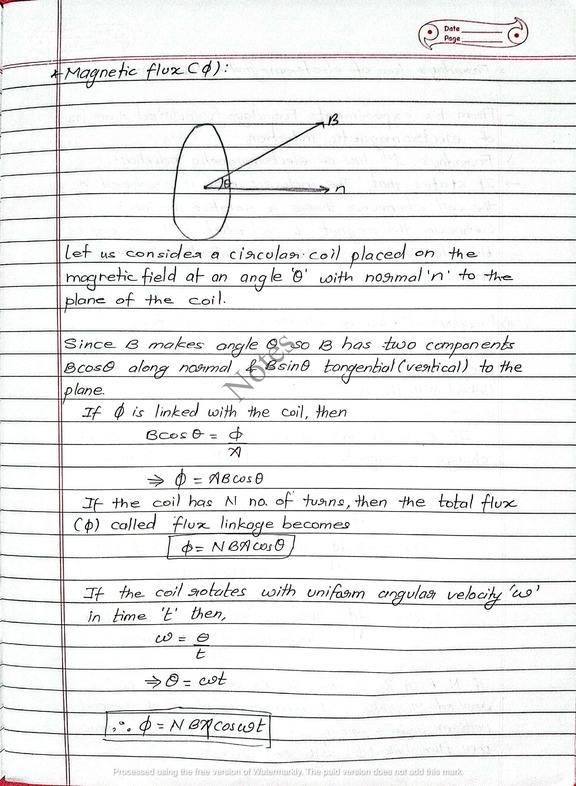 Date
Page
* Magnetic flux (ϕ):
B
θ
n
Let us consider a circular coil placed on the
magnetic field at an angle 'θ' with normal 'n' to the
plane of the coil.
Since B makes angle θ so B has two components
Bcosθ along normal & Bsinθ tangential (vertical) to the
plane.
Notes
If ϕ is linked with the coil, then
Bcosθ = ϕ
A
⇒ ϕ = ABcosθ
If the coil has N no. of turns, then the total flux
(ϕ) called flux linkage becomes
ϕ = NBAcosθ
If the coil rotates with uniform angular velocity 'ω'
in time 't' then,
ω = θ
t
⇒ θ = ωt
∴ ϕ = NBAcosωt
Processed using the free version of Watermarkly. The paid version does not add this mark.